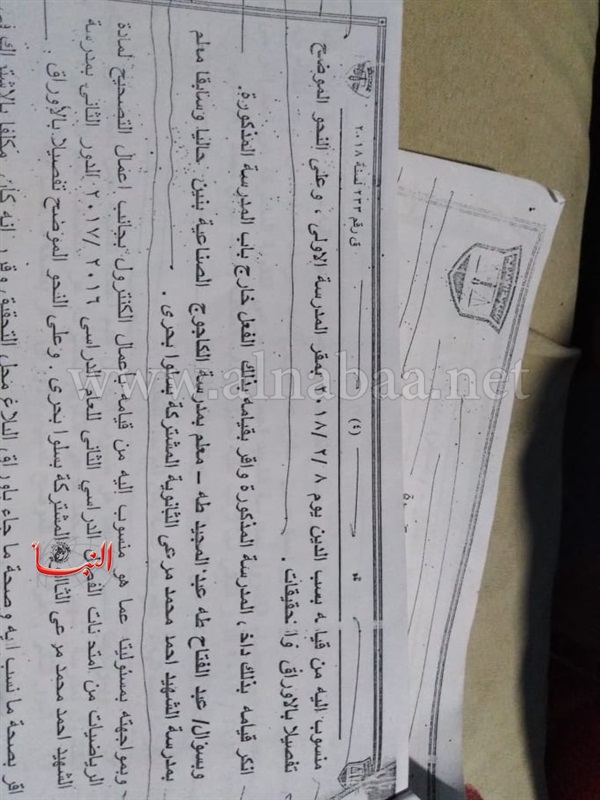 ق رقم ٢٣٣ لسنة ٢٠١٨
(٤)
منسوب اليه من قيامه بسب الدين يوم ٨ /٢ /٢٠١٨ بمقر المدرسة الاولى ، وعلى النحو الموضح
تفصيلا بالاوراق والتحقيقات .
انكر قيامه بذلك داخل المدرسة المذكورة واقر بقيامه بذلك الفعل خارج باب المدرسة المذكورة.
وبسؤال/ عبد الفتاح طه عبد المجيد طه – معلم بمدرسة الكاجوج الصناعية بنين حاليا وسابقا معلم
بمدرسة الشهيد احمد محمد مرعى الثانوية المشتركة بسلوا بحرى .
وبمواجهته بمسئوليته عما هو منسوب اليه من قيامه باعمال الكنترول بجانب اعمال التصحيح لمادة
الرياضيات من امتحانات الفصل الدراسي الثانى للعام الدراسى ٢٠١٦ /٢٠١٧ الدور الثانى بمدرسة
الشهيد احمد محمد مرعى المشتركة بسلوا بحرى . وعلى النحو الموضح تفصيلا بالاوراق .
اقر بصحة ما نسب اليه وصحة ما جاء باوراق البلاغ محل التحقيق وقرر انه كان مكلفا بالاشتراك
www.alnabaa.net
النبأ